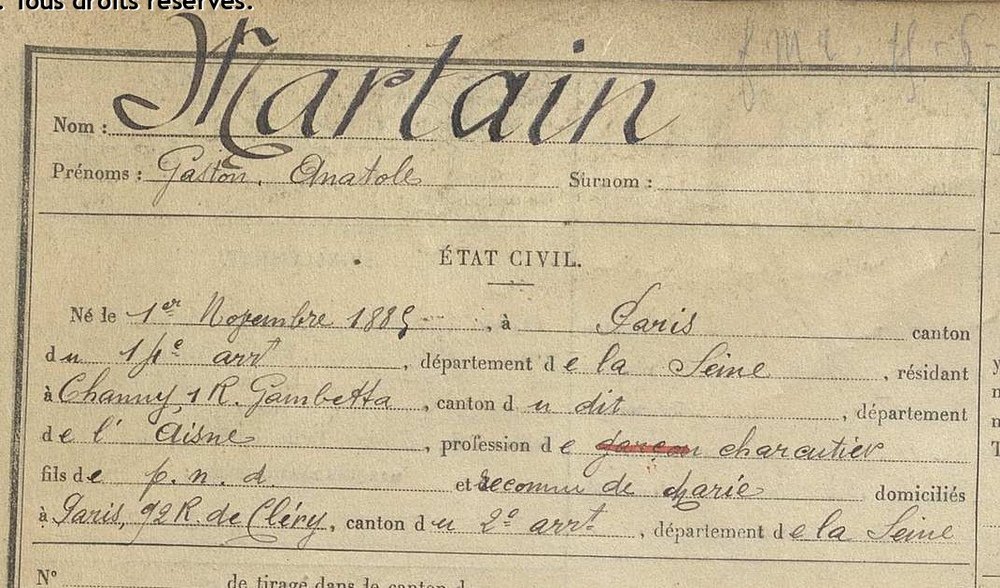 . Tous droits réservés.
Nom : Martain
Prénoms : Gaston, Anatole Surnom :
ÉTAT CIVIL.
Né le 1er Novembre 1885, à Paris canton
du 14e arrt, département de la Seine, résidant
à Chauny, 1 R. Gambetta, canton du dit, département
de l'Aisne, profession de garçon charcutier
fils de p. n. d. et reconnu de Marie domiciliés
à Paris, 92 R. de Cléry, canton du 2e arrt, département de la Seine
N° de tirage dans le canton d